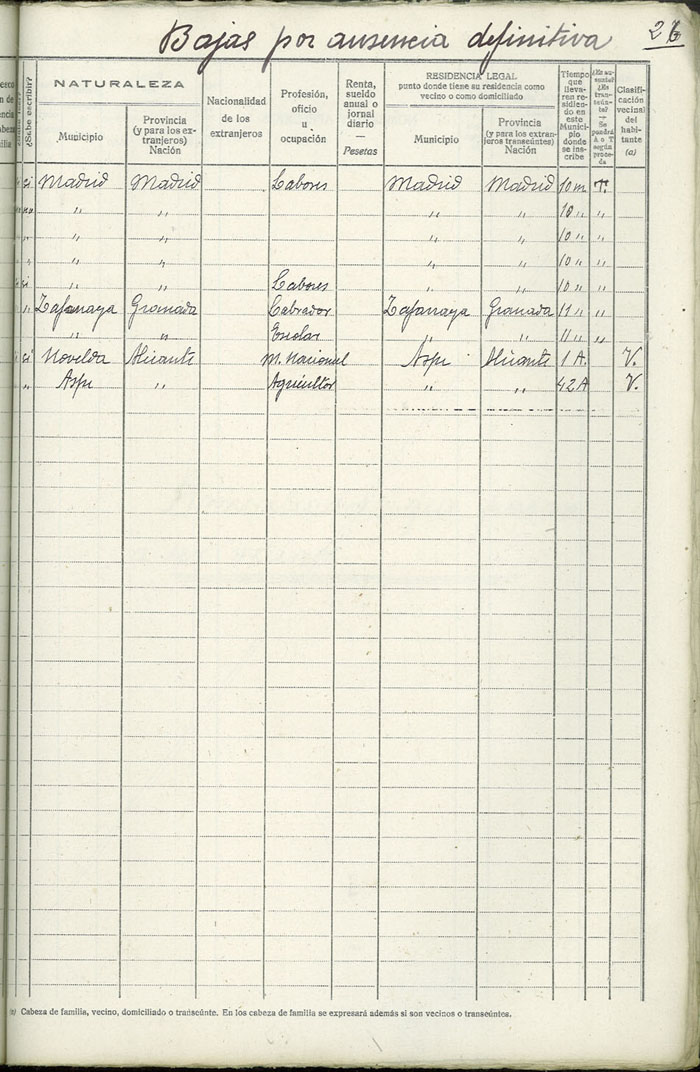 Bajas por ausencia definitiva
NATURALEZA
Municipio
Provincia
(y para los ex-
tranjeros)
Nación
¿Sabe escribir?
Nacionalidad
de los
extranjeros
Profesión,
oficio
u
ocupación
Renta,
sueldo
anual o
jornal
diario
—
Pesetas
RESIDENCIA LEGAL
punto donde tiene su residencia como
vecino o como domiciliado
Municipio
Provincia
(y para los extran-
jeros transeúntes)
Nación
Tiempo
que
lleva-
ren re-
sidien-
do en
este
Munici-
pio
donde
se ins-
cribe
¿Es au-
sente?
¿Es
tran-
seún-
te?
—
Se
pondrá
A o T
según
proce-
da
Clasifi-
cación
vecinal
del
habi-
tante
(a)
si Madrid Madrid Labores Madrid Madrid 10 m T.
" " " " 10 " "
" " " " 10 " "
" " " " 10 " "
si " " Labores " " 10 " "
" Zafarraya Granada Labrador Zafarraya Granada 11 " "
" " Escolar " " 11 " "
si Novelda Alicante M. Nacional Aspe Alicante 1 A. V.
" Aspe " Agricultor " " 42 A V.
(a) Cabeza de familia, vecino, domiciliado o transeúnte. En los cabeza de familia se expresará además si son vecinos o transeúntes.